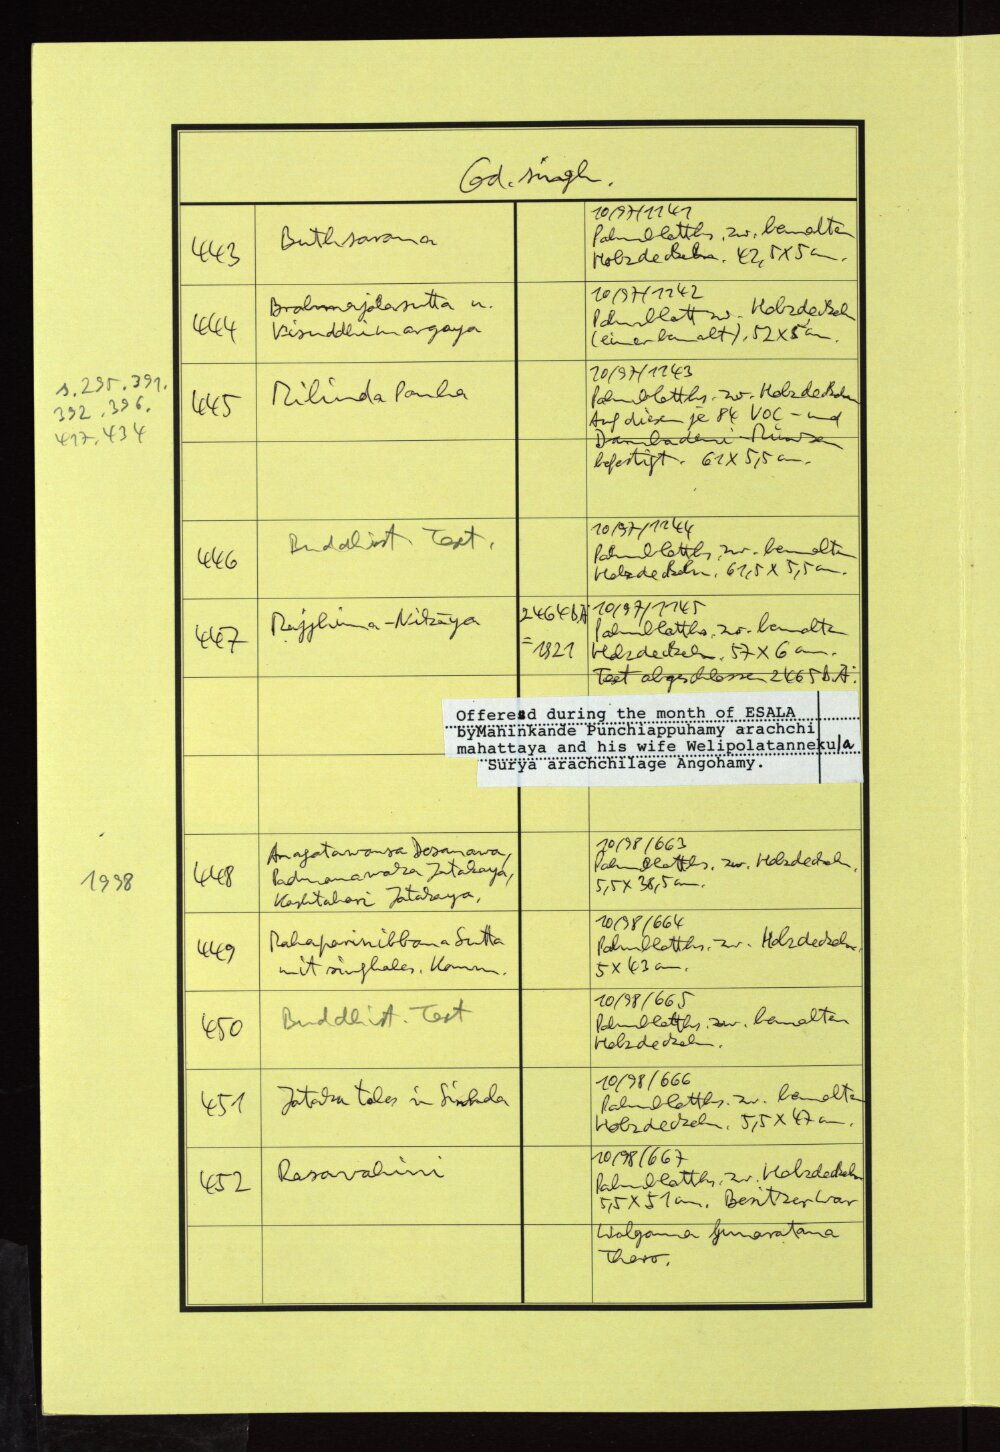 Cod. singh.
443
Buthsarana
10/97/1141
Palmblatths. zw. bemalten
Holzdeckeln. 42,5 X 5 cm.
444
Brahmajālasutta u.
Visuddhimargaya
10/97/1142
Palmblatt zw. Holzdeckeln
(einer bemalt). 52 X 5 cm.
s. 295. 391.
392. 396.
417. 434
445
Milinda Panha
10/97/1143
Palmblatths. zw. Holzdeckeln
Auf diesen je 84 VOC- und
Dambadeni-Münzen
befestigt. 61 X 5,5 cm.
446
Buddhist. Text.
10/97/1144
Palmblatths. zw. bemalten
Holzdeckeln. 61,5 X 5,5 cm.
447
Majjhima-Nikāya
2464 B.Ä
= 1921
10/97/1145
Palmblatths. zw. bemalten
Holzdeckeln. 57 X 6 cm.
Text abgeschlossen 2465 B.Ä.
Offeresd during the month of ESALA
byMahinkande Punchiappuhamy arachchi
mahattaya and his wife Welipolatannekula
Surya arachchilage Angohamy.
1998
448
Anagatawansa Desanawa,
Padmanawaka Jatakaya,
Kashtahari Jatakaya.
10/98/663
Palmblatths. zw. Holzdeckeln.
5,5 X 38,5 cm.
449
Mahaparinibbana Sutta
mit singhales. Komm.
10/98/664
Palmblatths. zw. Holzdeckeln.
5 X 43 cm.
450
Buddhist. Text
10/98/665
Palmblatths. zw. bemalten
Holzdeckeln.
451
Jataka tales in Sinhala
10/98/666
Palmblatths. zw. bemalten
Holzdeckeln. 5,5 X 47 cm.
452
Rasavahini
10/98/667
Palmblatths. zw. Holzdeckeln
5,5 X 51 cm. Besitzer war
Walgama Gunaratana
Thero.